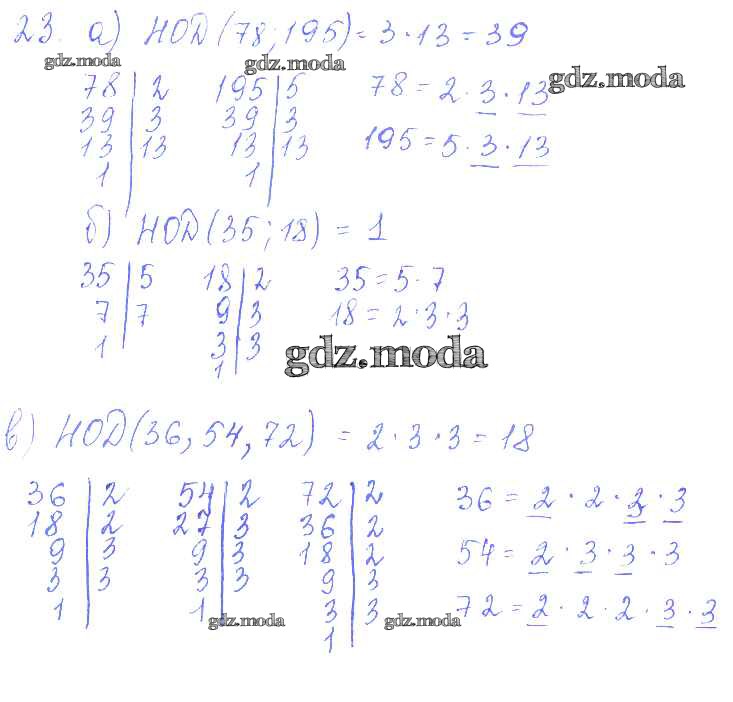 23. а) НОД(78; 195) = 3 · 13 = 39
gdz.moda gdz.moda gdz.moda
78 | 2 195 | 5 78 = 2 · 3 · 13
39 | 3 39 | 3
13 | 13 13 | 13 195 = 5 · 3 · 13
1 | 1 |
б) НОД(35; 18) = 1
35 | 5 18 | 2 35 = 5 · 7
7 | 7 9 | 3 18 = 2 · 3 · 3
1 | 3 | 3
1 |
gdz.moda
в) НОД(36, 54, 72) = 2 · 3 · 3 = 18
36 | 2 54 | 2 72 | 2 36 = 2 · 2 · 3 · 3
18 | 2 27 | 3 36 | 2
9 | 3 9 | 3 18 | 2 54 = 2 · 3 · 3 · 3
3 | 3 3 | 3 9 | 3
1 | 1 | 3 | 3 72 = 2 · 2 · 2 · 3 · 3
gdz.moda gdz.moda
1 |